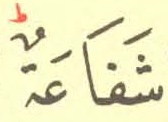 شَفَاعَةٌ ط